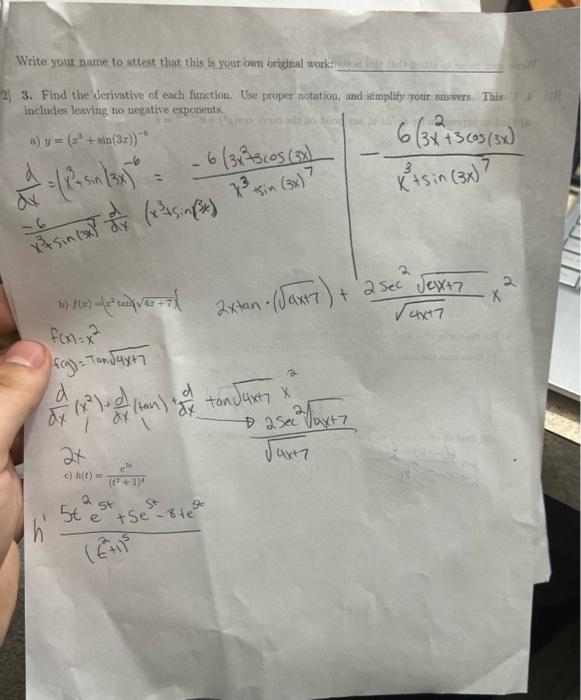 Write your name to attest that this is your own original work:
2] 3. Find the derivative of each function. Use proper notation, and simplify your answers. This
includes leaving no negative exponents.
a) y = (x³ + sin(3x))⁻⁶
d/dx = (x³+sin(3x))⁻⁶ = -6(3x²+3cos(3x)) / x³+sin(3x)⁷
- 6(3x²+3cos(3x)) / x³+sin(3x)⁷
-6 / x³+sin(3x)⁷ d/dx (x³+sin(3x))
b) f(x) = (x² tan(√4x+7)) 2xtan·(√4x+7) + 2sec²√4x+7 / √4x+7 x²
f(x)=x²
f(g)=Tan√4x+7
d/dx (x²)+ d/dx (tan) + d/dx tan√4x+7 x²
2sec²√4x+7 / √4x+7
2x
c) h(t) = e⁵ᵗ / (t²+1)⁴
h' 5t²e⁵ᵗ+5e⁵ᵗ-8te⁵ᵗ / (t²+1)⁵